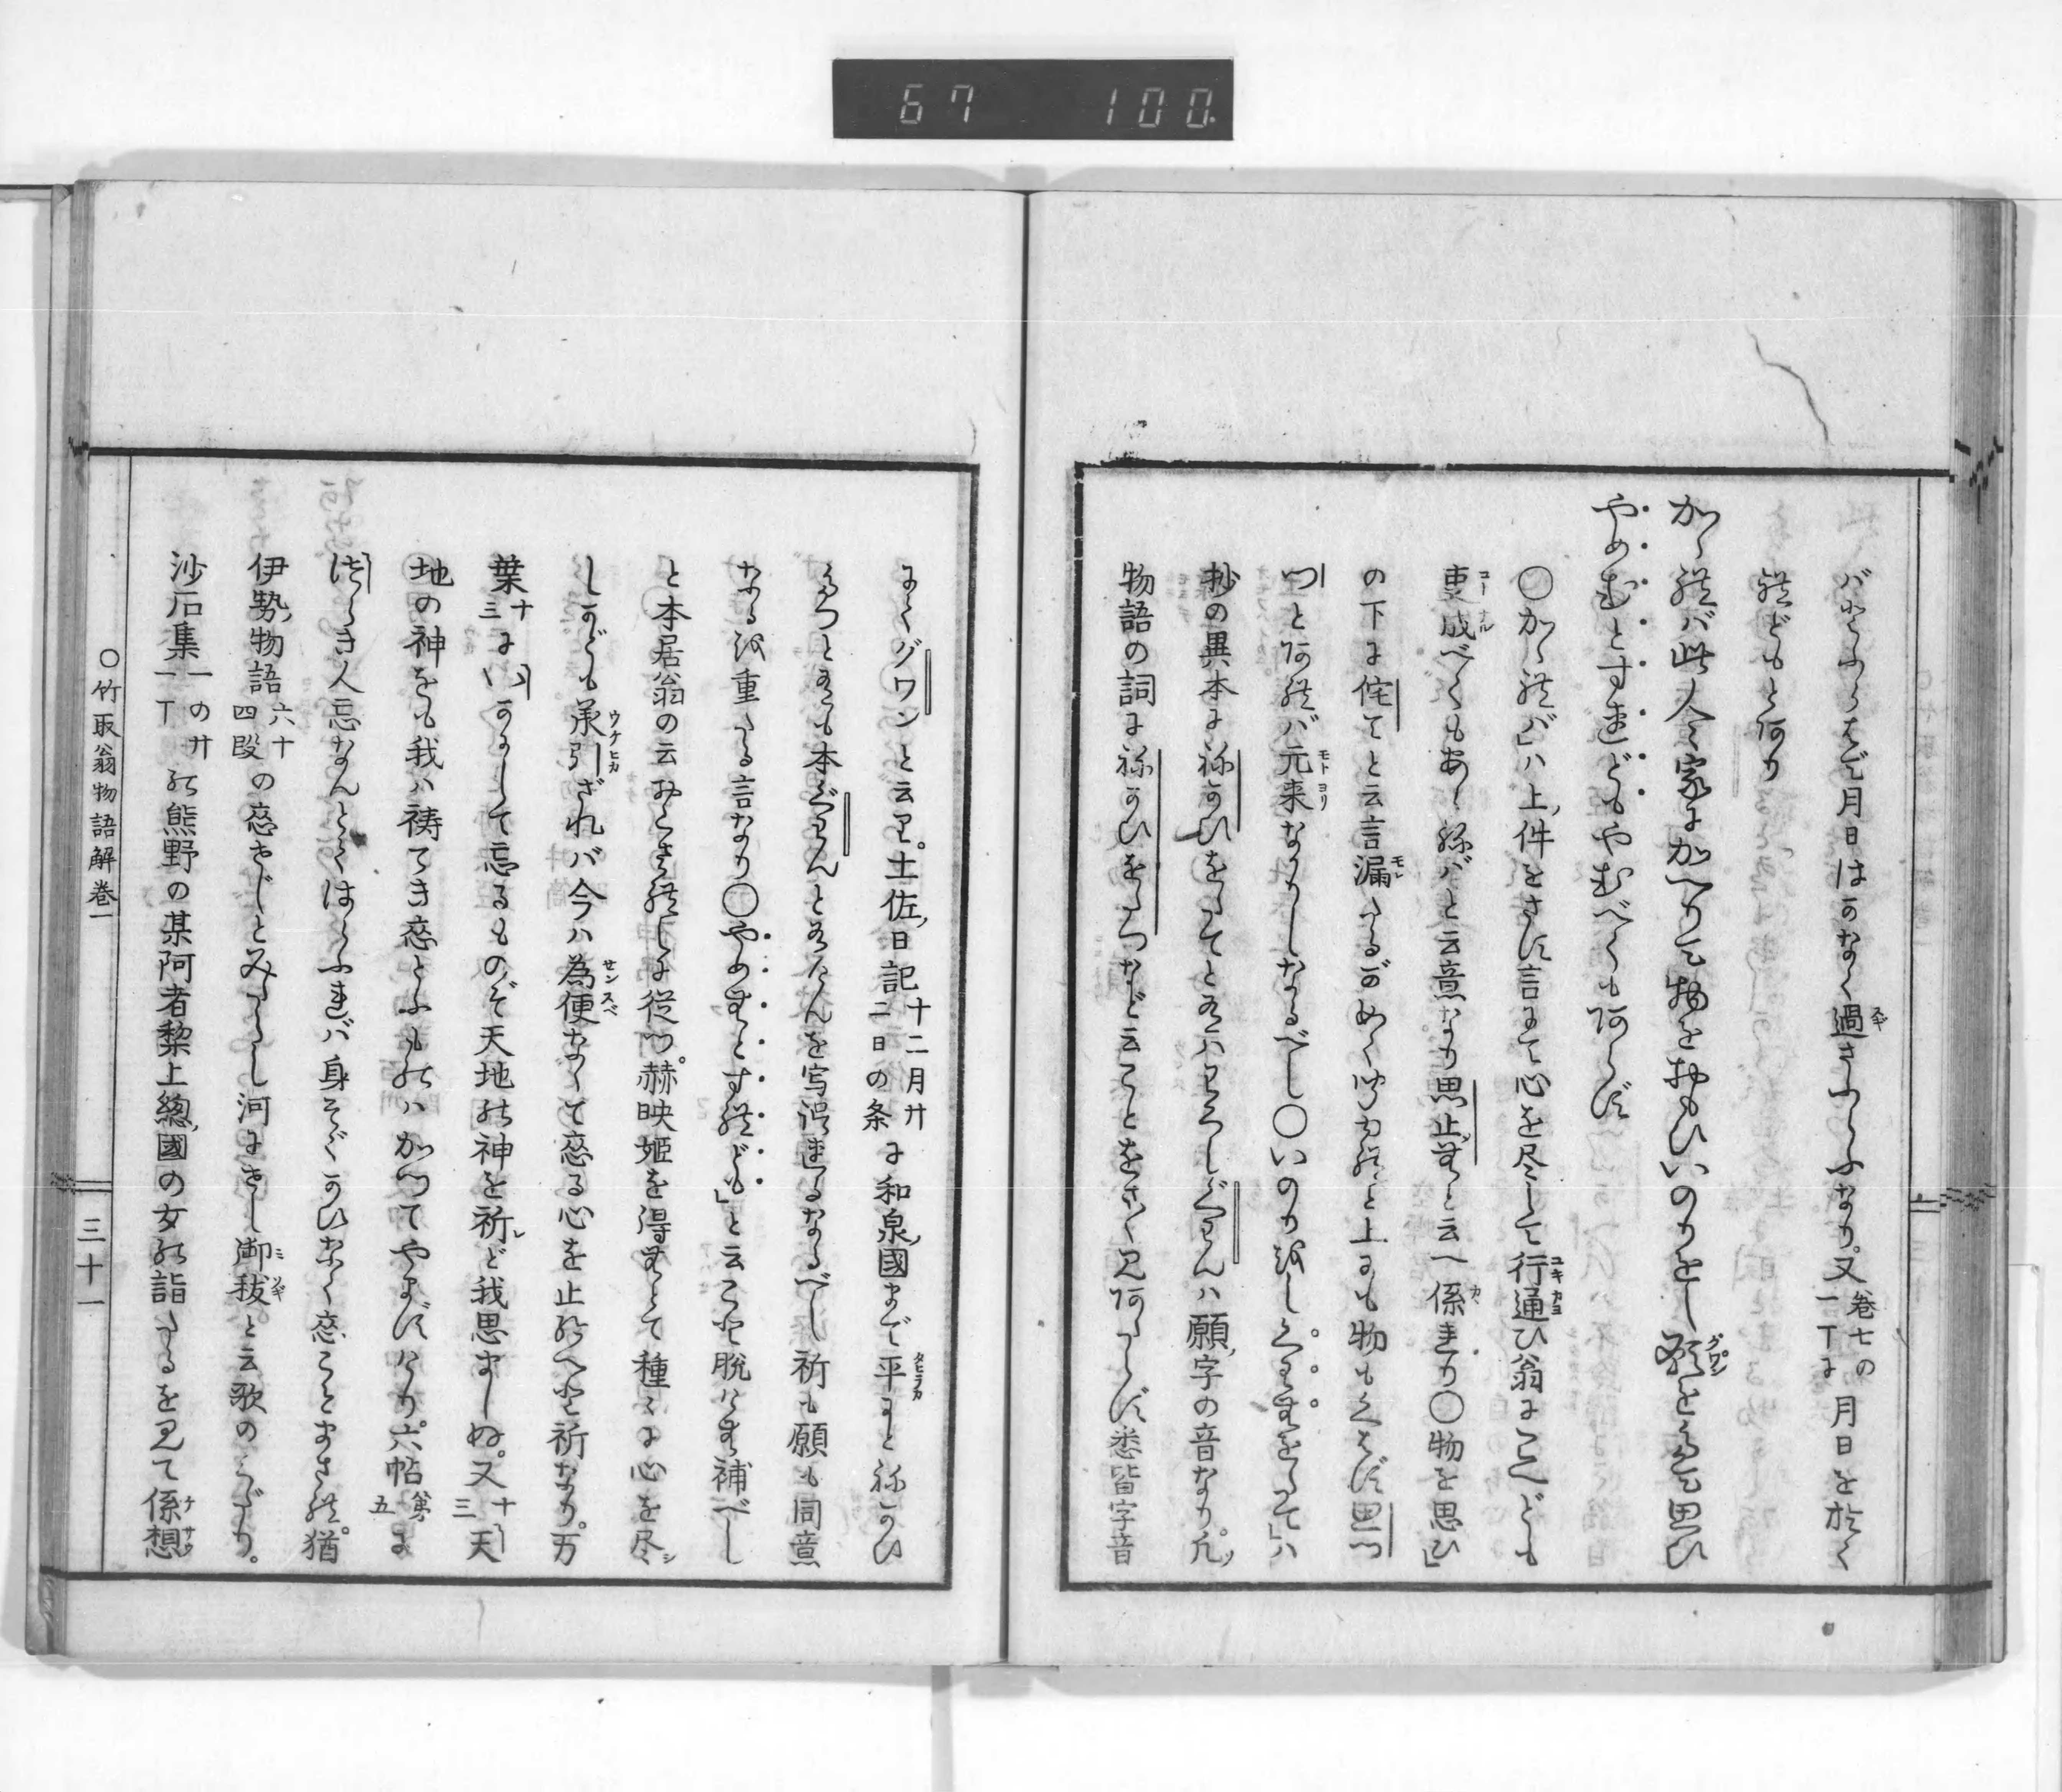 67 100
バいふらで月日はかなく過きふらふなり又巻七の一丁に月日を於く
れどもと阿り
かゝれバ此人々家にかへりて物をおもひいのりをし願をたて思ひ
やめむとすれどもやむべくも阿らず
○かゝれバ」ハ上,件をさす言にて心を尽して行通ひ翁にこへども
更成べくもあらねバと云意なり思止むと云へ係れり○物を思ひ」
の下に侘てと云言漏たるがめく聞ゆれと上にも物もくはず思つ
つと阿れバ元来なかりしなるべし○いのり越しくわむをたて」ハ
抄の異本に祢がひをたてと有ハわろしぐわんハ願,字の音なり凡,
物語の詞に祢がひをたつなど云ことをさく見阿たらず悉皆字音
にてグワンと云り土佐,日記十二月廿二日の条に和泉,國まで平にと祢かひ
たつとあるも本ぐわんと有けんを写誤れるなるべし祈も願も同意
なる越重たる言なり○やめむとすれども」と云こと脱けむ補べし
と本居翁の云おかされしに従つ赫映姫を得むとて種々に心を尽
しかども承引ざれバ今ハ為便なくて恋る心を止給へと祈なり万
葉十三にいかにして忘るものぞ天地の神を祈ど我思ましぬ又十三天
地の神をも我ハ祷てき恋とふものハかつてやまずけり六帖第五に
つらき人忘なんとてはらふれバ身そぎかひなく恋ことまされ猶
伊勢,物語六十四段の恋せじとみたらし河にせし御秡と云歌のくだり
沙石集一の廿一丁の熊野の某阿者黎上總,國の女の詣たるを見て係想
○竹取翁物語解巻一
三十一